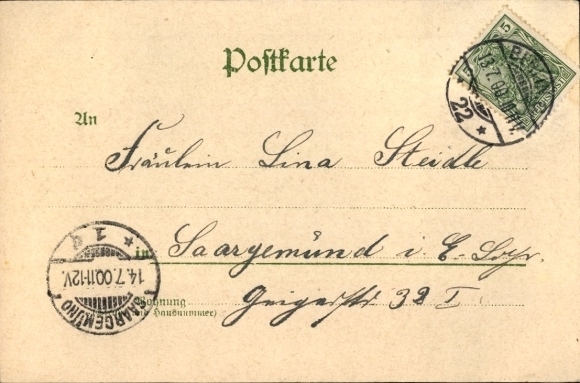 Postkarte
An
Fräulein Lina Steidle
in Saargemünd i. E.-Lothr.
Wohnung
(und Hausnummer)
32 I
5
13.7.00
22 *
SAARGEMÜND 1
14.7.00.11-12V.
* 1 d